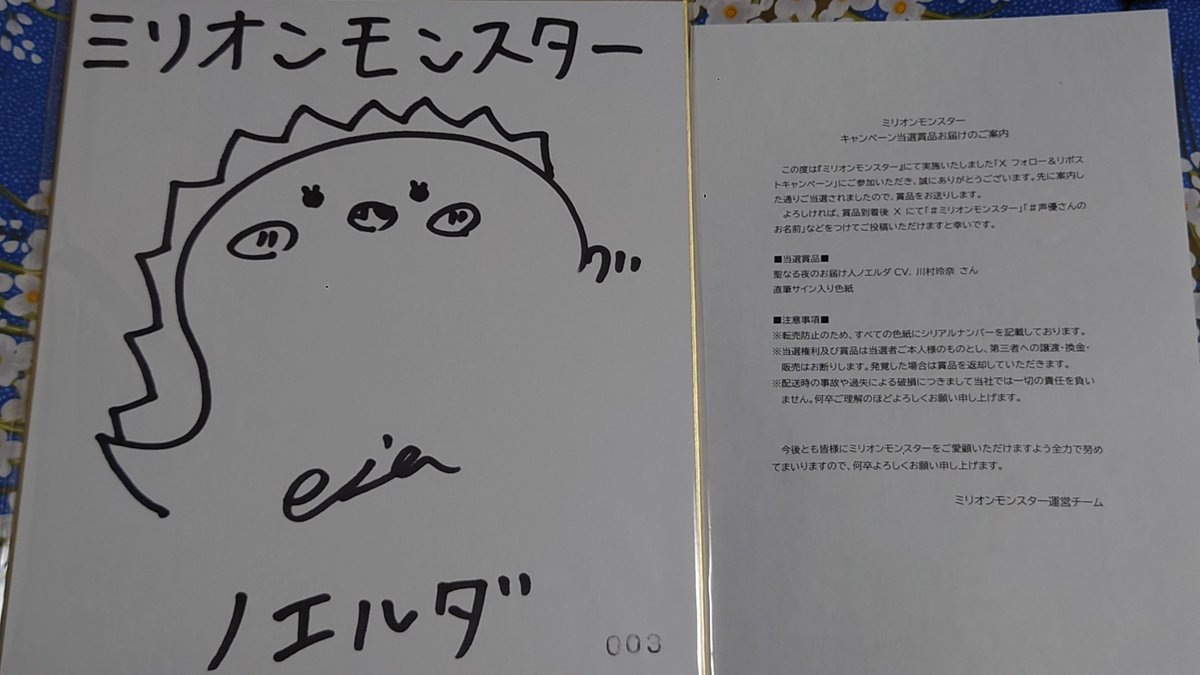 ミリオンモンスター
ノエルダ
003
ミリオンモンスター
キャンペーン当選賞品お届けのご案内
この度は『ミリオンモンスター』にて実施いたしました「X フォロー＆リポス
トキャンペーン」にご参加いただき、誠にありがとうございます。先に案内し
た通りご当選されましたので、賞品をお送りします。
よろしければ、賞品到着後 X にて「＃ミリオンモンスター」「＃声優さんの
お名前」などをつけてご投稿いただけますと幸いです。
■当選賞品■
聖なる夜のお届け人ノエルダ CV. 川村玲奈 さん
直筆サイン入り色紙
■注意事項■
※転売防止のため、すべての色紙にシリアルナンバーを記載しております。
※当選権利及び賞品は当選者ご本人様のものとし、第三者への譲渡・換金・
販売はお断りします。発覚した場合は賞品を返却していただきます。
※配送時の事故や過失による破損につきまして当社では一切の責任を負い
ません。何卒ご理解のほどよろしくお願い申し上げます。
今後とも皆様にミリオンモンスターをご愛顧いただけますよう全力で努め
てまいりますので、何卒よろしくお願い申し上げます。
ミリオンモンスター運営チーム